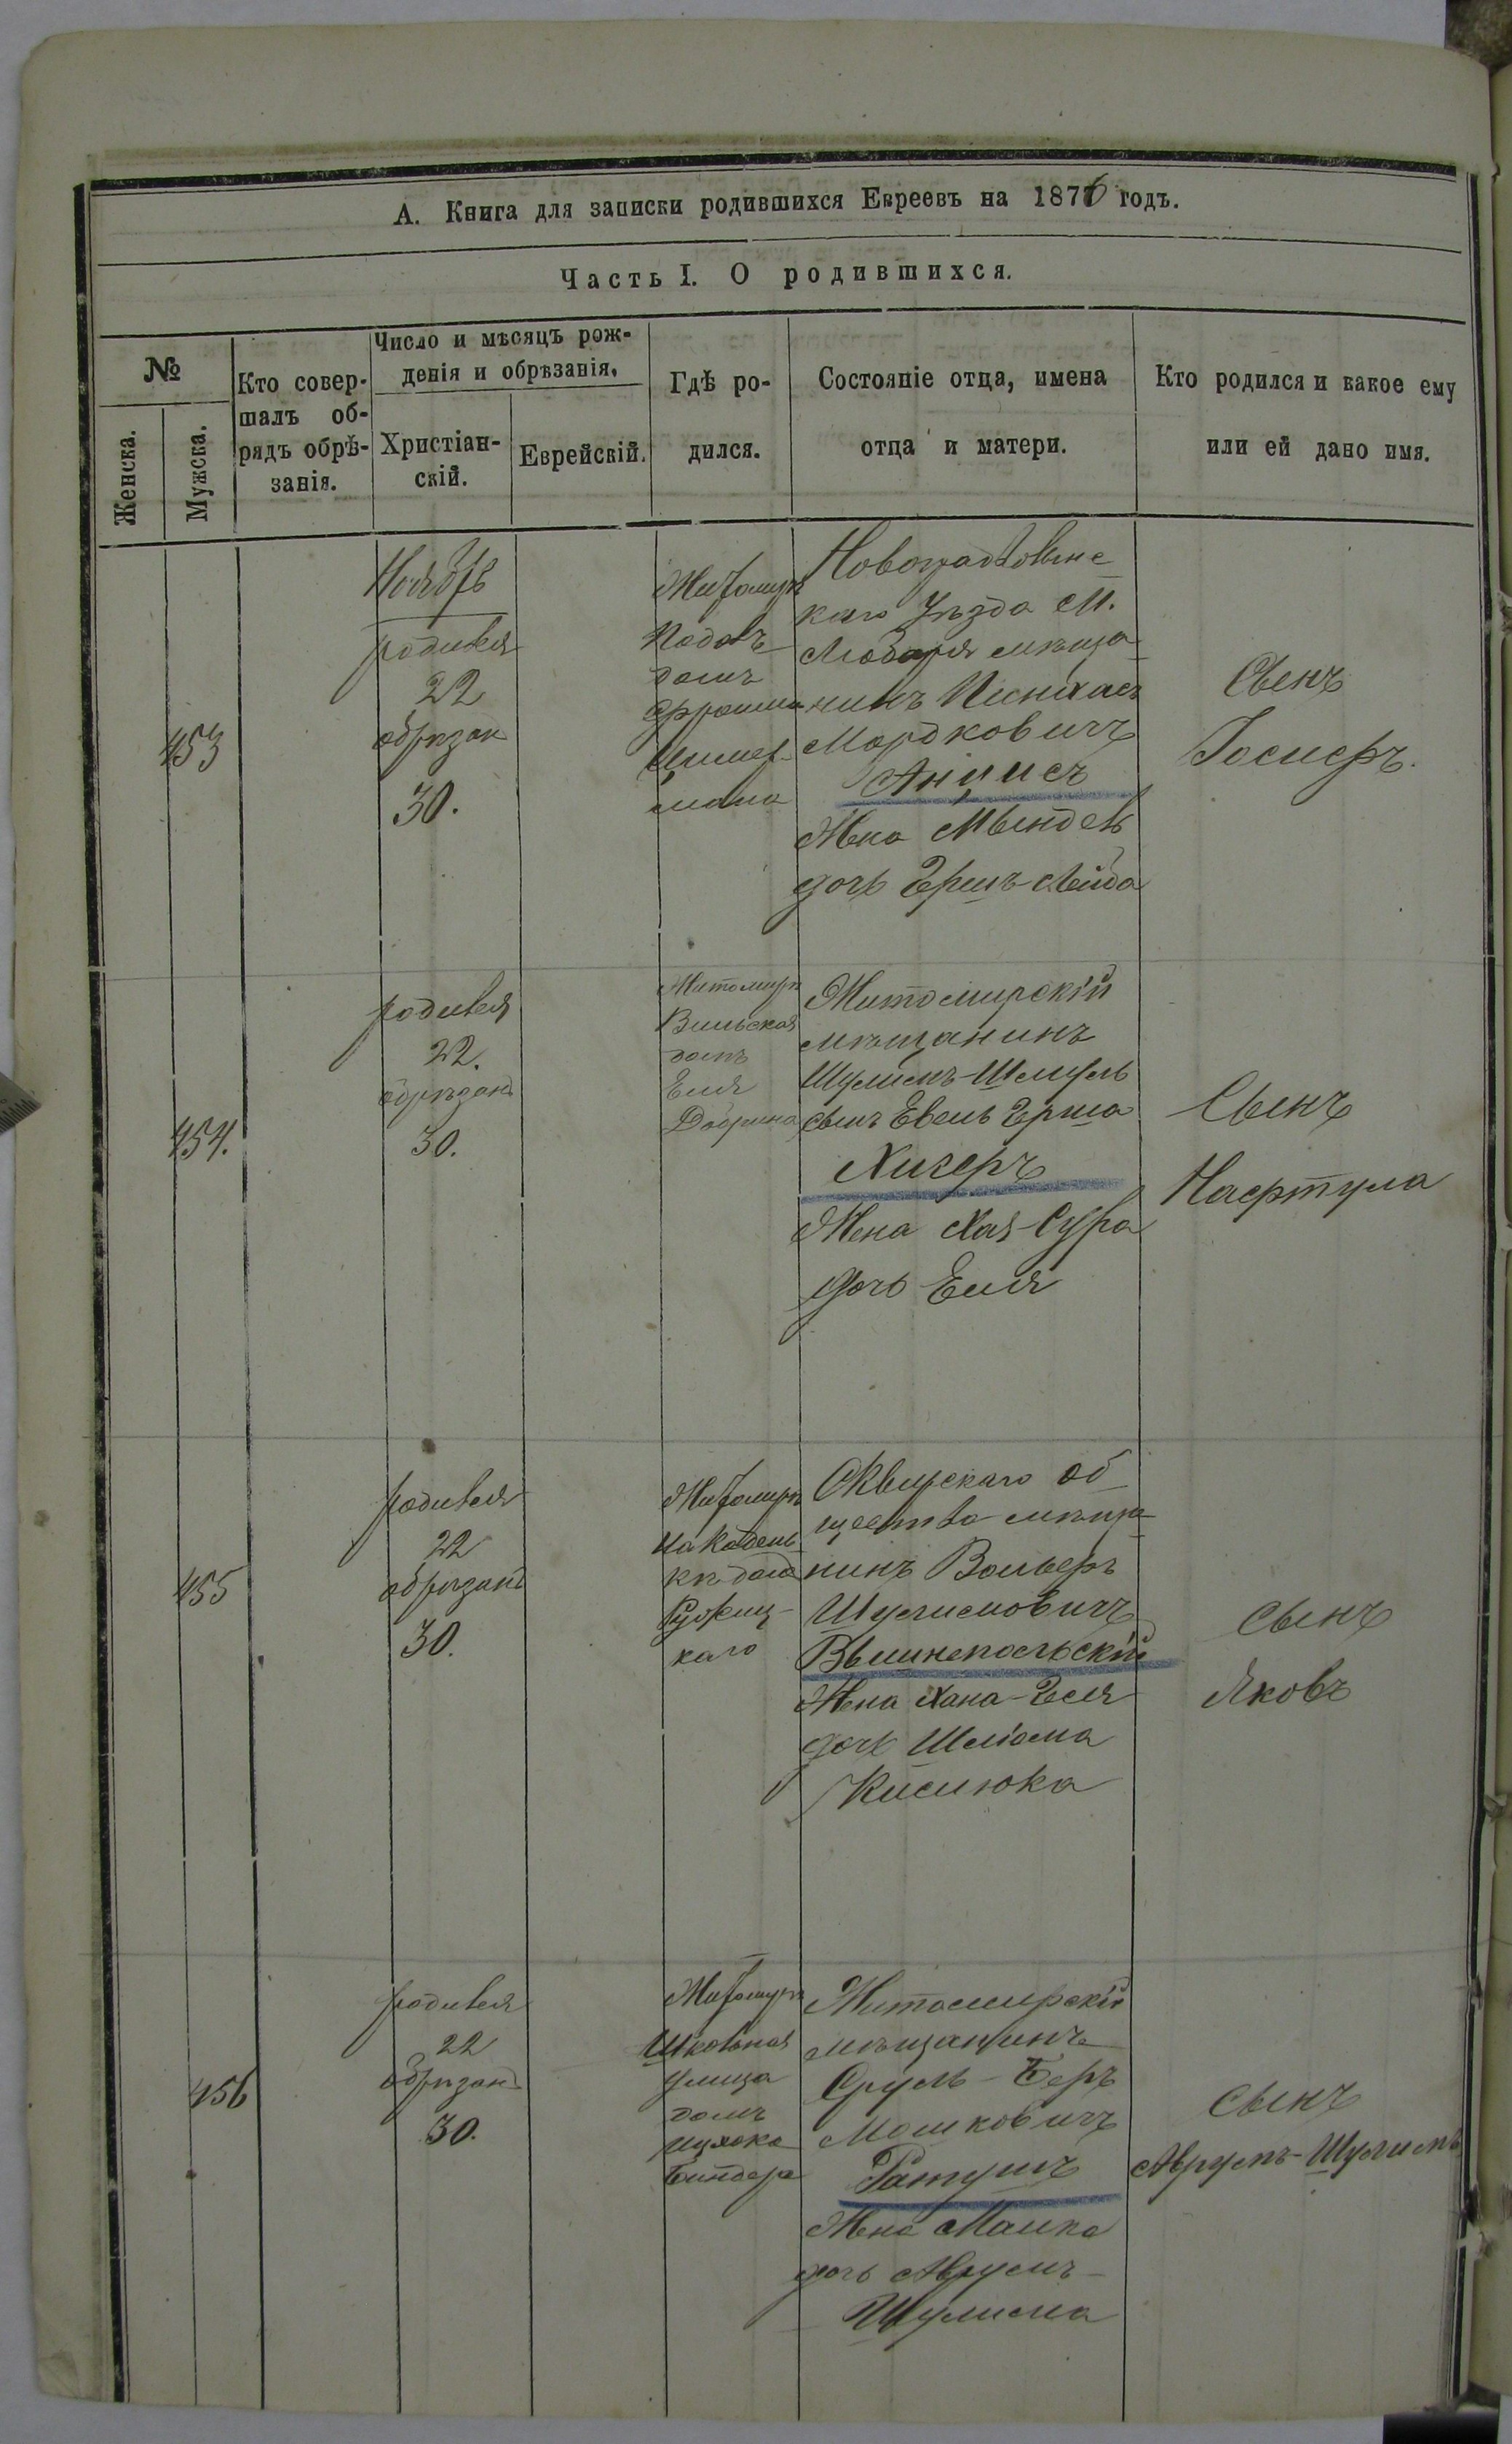 А. Книга для записки родившихся Евреевъ на 1876 годъ.
Часть I. О родившихся.
№
Женска.
Мужска.
Кто совер-
шалъ об-
рядъ обрѣ-
занія.
Число и мѣсяцъ рож-
денія и обрѣзанія.
Христіан-
скій.
Еврейскій.
Гдѣ ро-
дился.
Состояніе отца, имена
отца и матери.
Кто родился и какое ему
или ей дано имя.
453
Ноябрь
родився
22
обрѣзан
30.
Житомиръ
Подолъ
домъ
Фроима
Новоградволынс
каго Уѣзда М.
Любаря мѣща
нинъ Пинхасъ
Мордковичъ
Анцисъ
Жена Мындель
дочь Гершъ-Лейба
Сынъ
Іосифъ.
454.
родився
22.
обрѣзанъ
30.
Житомиръ
Вильская
домъ
Еля
Добрина
Житомирскій
мѣщанинъ
Шулимъ-Шмуль
сынъ Евель Герша
Хигеръ
Жена Хая-Сура
дочь Еля
Сынъ
Нафтула
455
родився
22
обрѣзанъ
30.
Житомиръ
на Кадень
кѣ дома
каго
Сквирскаго об
щества мѣща
нинъ Вольфъ
Шулимовичъ
Вышнепольскій
Жена Хана-Геся
дочь Шліома
Кисилюка
сынъ
Яковъ
456
родився
22
обрѣзанъ
30.
Житомиръ
Школьная
улица
домъ
Ицхока
Биндера
Житомирскій
мѣщанинъ
Сруль-Беръ
Мошковичъ
Ратушъ
Жена Малка
дочь Аврумъ-
Шулима
сынъ
Аврумъ-Шулимъ